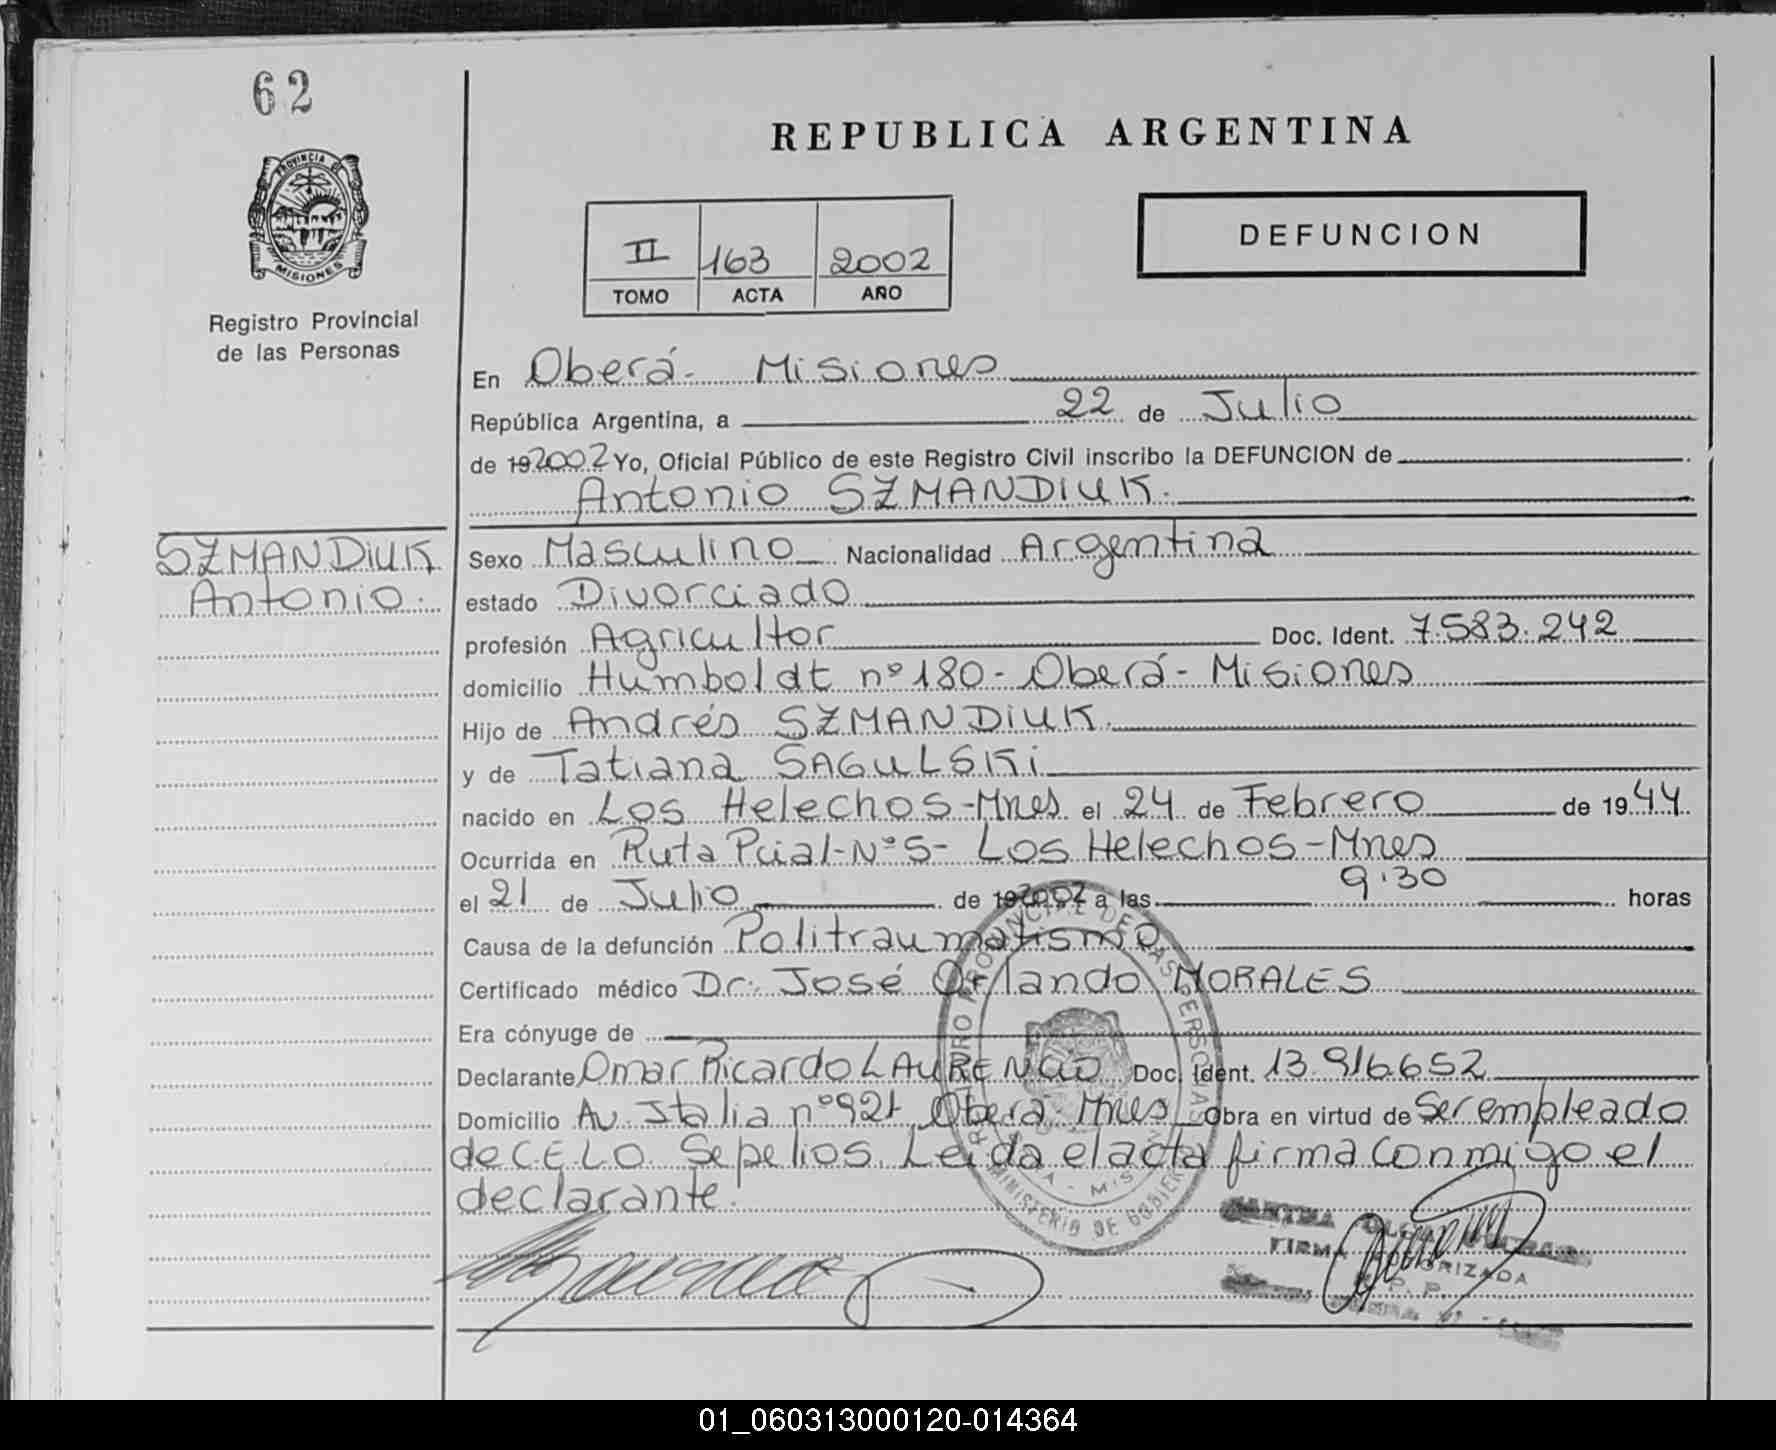 62
PROVINCIA DE
MISIONES
Registro Provincial
de las Personas
REPUBLICA ARGENTINA
DEFUNCION
II 163 2002
TOMO ACTA AÑO
En Oberá - Misiones
República Argentina, a 22 de Julio
de 192002 Yo, Oficial Público de este Registro Civil inscribo la DEFUNCION de
Antonio SZMANDIUK.
SZMANDIUK
Antonio.
Sexo Masculino Nacionalidad Argentina
estado Divorciado
profesión Agricultor Doc. Ident. 7.583.242
domicilio Humboldt nº 180 - Oberá - Misiones
Hijo de Andrés SZMANDIUK.
y de Tatiana SAGULSKi
nacido en Los Helechos - Mnes el 24 de Febrero de 1944.
Ocurrida en Ruta Pcial - Nº 5 - Los Helechos - Mnes
el 21 de Julio de 192002 a las 9:30 horas
Causa de la defunción Politraumatismo
Certificado médico Dr. José Orlando MORALES
Era cónyuge de
Declarante Omar Ricardo LAURENCIO Doc. Ident. 13.916.652
Domicilio Av. Italia nº 921 Oberá Mnes Obra en virtud de Ser empleado
de C.E.L.O. Sepelios. Leída el acta firma conmigo el
declarante.
FIRMA AUTORIZADA
R. P. P.
01_060313000120-014364